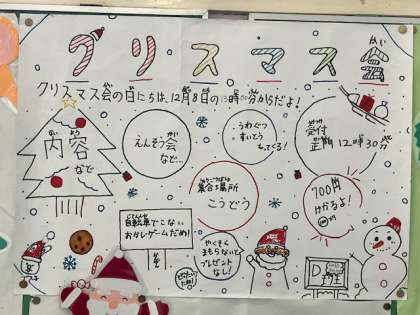 クリスマス会
かい
クリスマス会の日にちは、12月8日の13時00分からだよ!
ないよう
内容
など
えんそう会
など…
うわぐつ
すいとう
もってくる!
受付
12時30分
集合場所
こうどう
700円
かかるよ!
じてんしゃ
自転車でこない
おかしゲームだめ!
やくそく
まもらないと
プレゼント
なし!